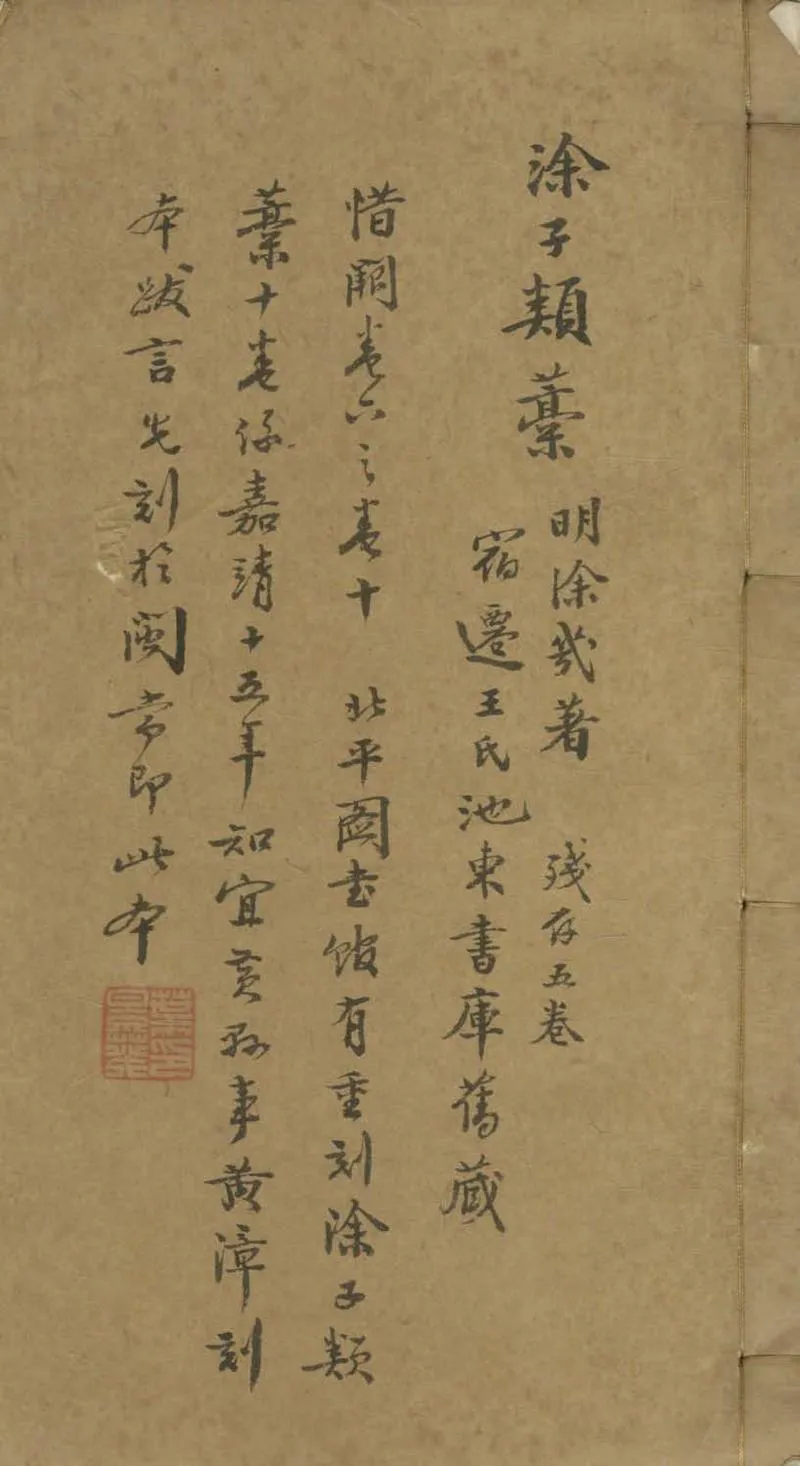 涂子類藁
明涂㡬著 殘存五卷
宿遷王氏池東書庫舊藏
惜闕卷六之卷十 北平圖书館有重刻涂子類
藁十卷係嘉靖十五年知宜黃縣事黃漳刻
本跋言先刻於閩當即此本